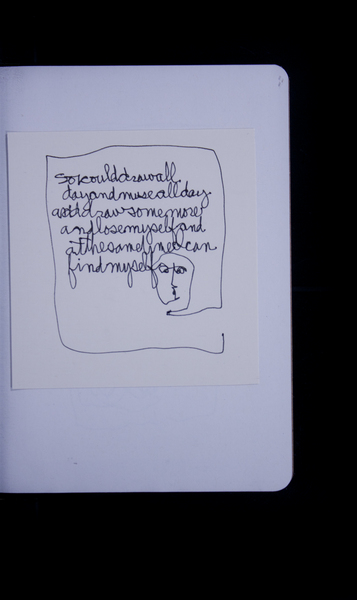 so I could draw all
day and muse all day
and draw some more
and lose myself and
at the same time I can
find myself